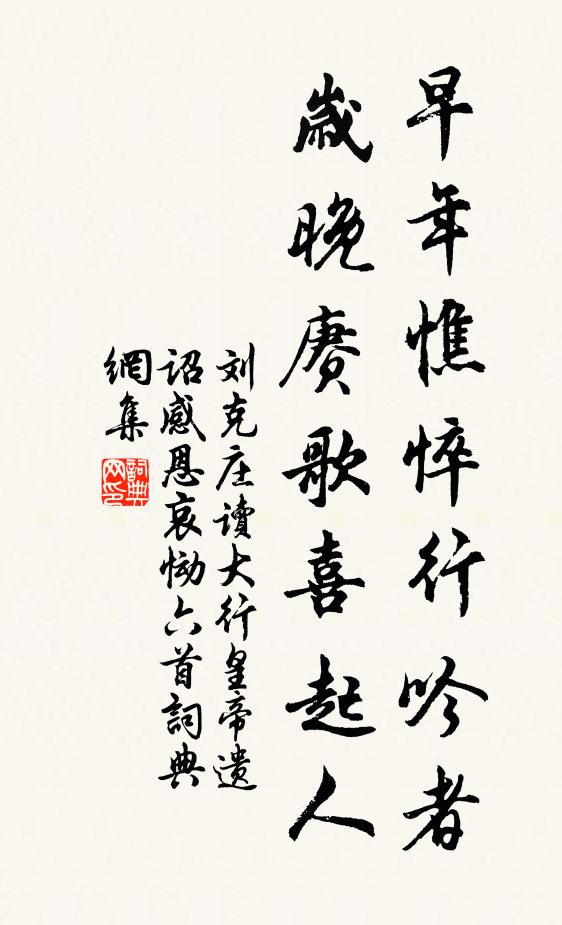 早年憔悴行吟者
歲晚賡歌喜起人
刘克庄讀大行皇帝遗
詔感恩哀慟六首詞典
網集
詞典
网印